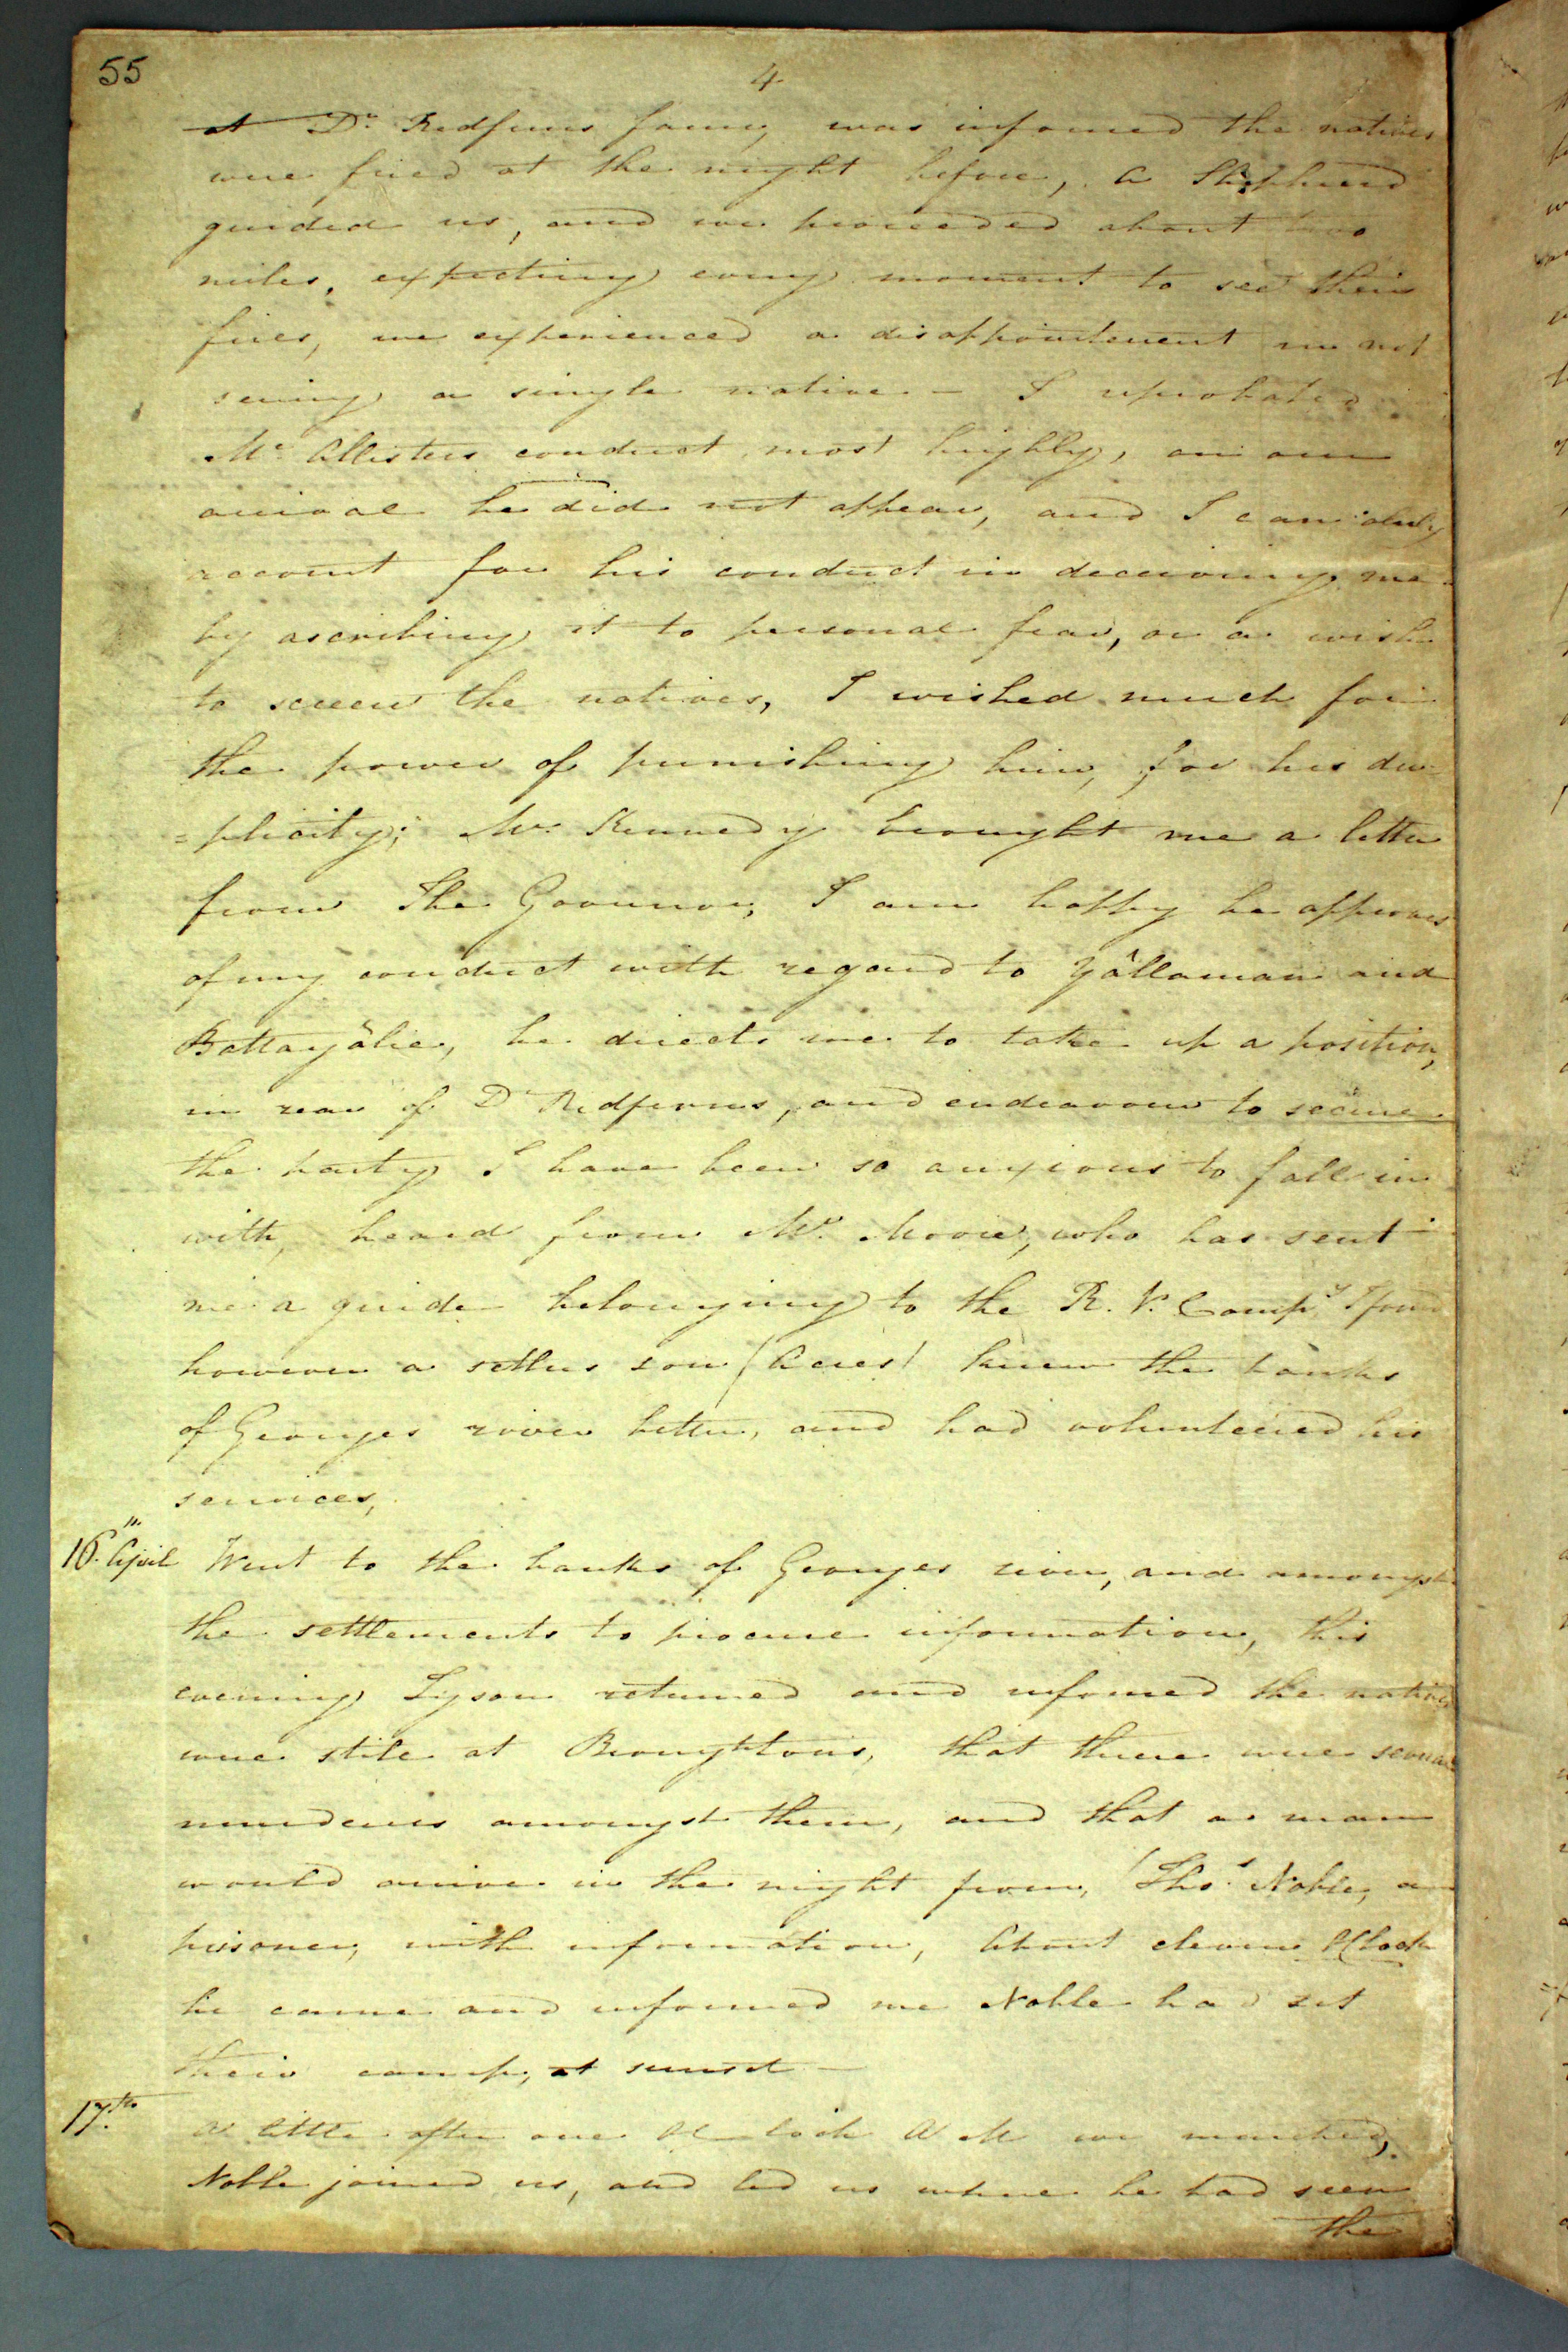 55
4
at Dr. Redferns farm, was informed the natives
were fired at the night before, a Shepherd
guided us, and we proceeded about two
miles, expecting every moment to see their
fires, we experienced a disappointement in not
seeing a single native - I reprobated
Mr. Allisters conduct most highly, on our
arrival he did not appear, and I can only
account for his conduct in deceiving me
by ascribing it to personal fear, or a wish
to screen the natives, I wished much for
the power of punishing him, for his du
=plicity; Mr. Kennedy brought me a letter
from The Governor, I am happy he approves
of my conduct with regard to Yâllaman and
Battagâlie, he directs me to take up a position,
in rear of Dr Redferns, and endeavour to secure
the party I have been so anxious to fall in
with, heard from Mr. Moore, who has sent
me a guide belonging to the R. V. Compy I found
however a settlers son (Acres) knew the banks
of Georges river better, and had volunteered his
services,
16th. April Went to the banks of Georges river, and amongst
the settlements to procure information, this
evening Tyson returned and informed the natives
were still at Broughtons, that there were several
murderers amongst them, and that a man
would arrive in the night from, Thos. Noble, a
prisoner, with information, About eleven OClock
he came and informed me Noble had set
their camp, at sunset -
17th. A little after one OClock A M we marched,
Noble joined us, and led us where he had seen
the